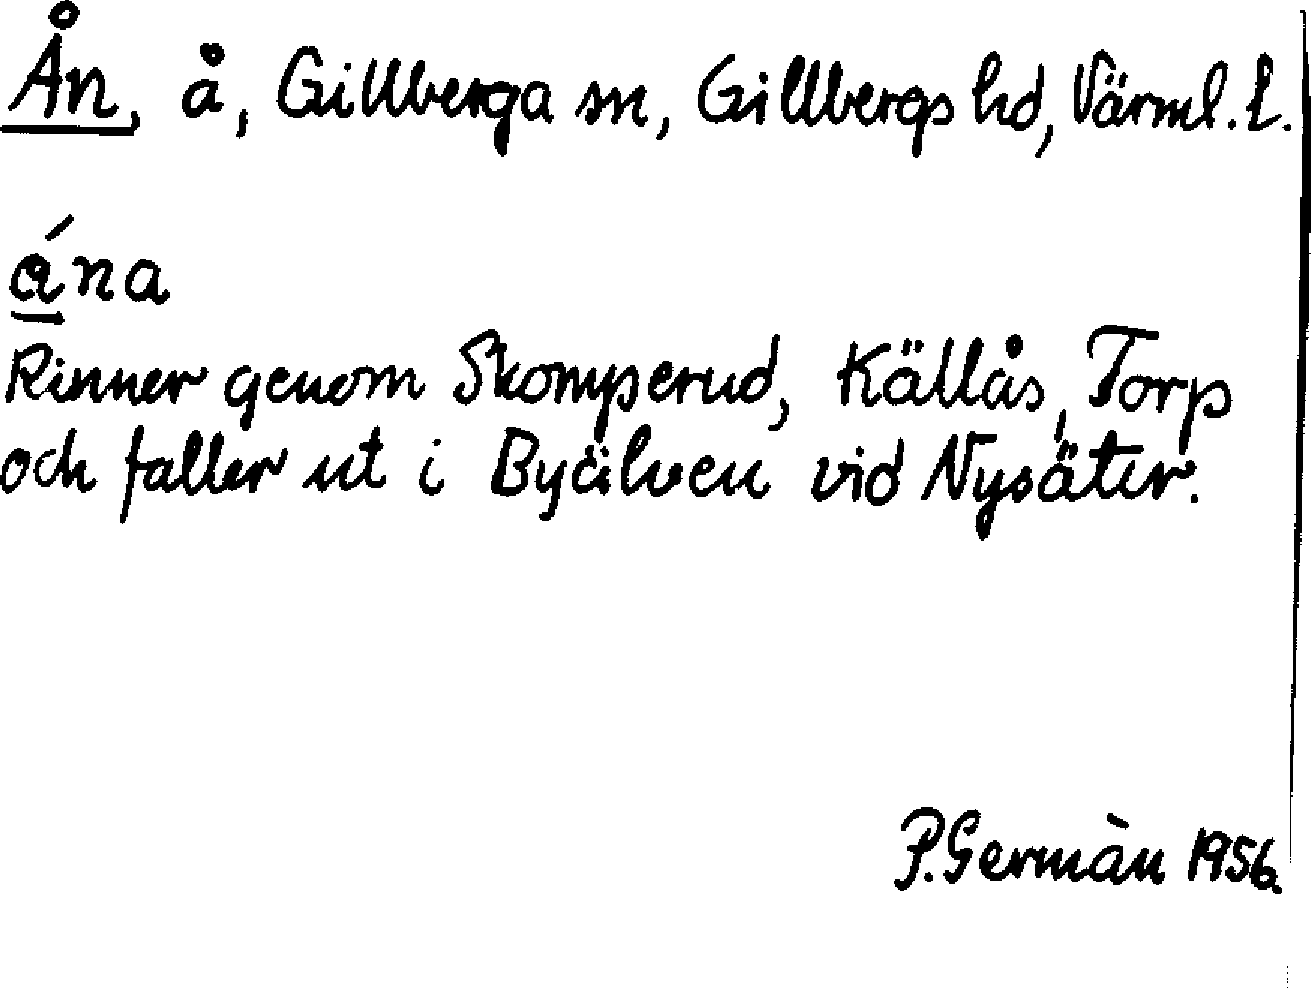 Ån, å, Gillberga sn, Gillbergs hd, Värml. l.
ána
Rinner genom Skomperud, Källås, Torp
och faller ut i Byälven vid Nysäter.
P. Germàn 1956.